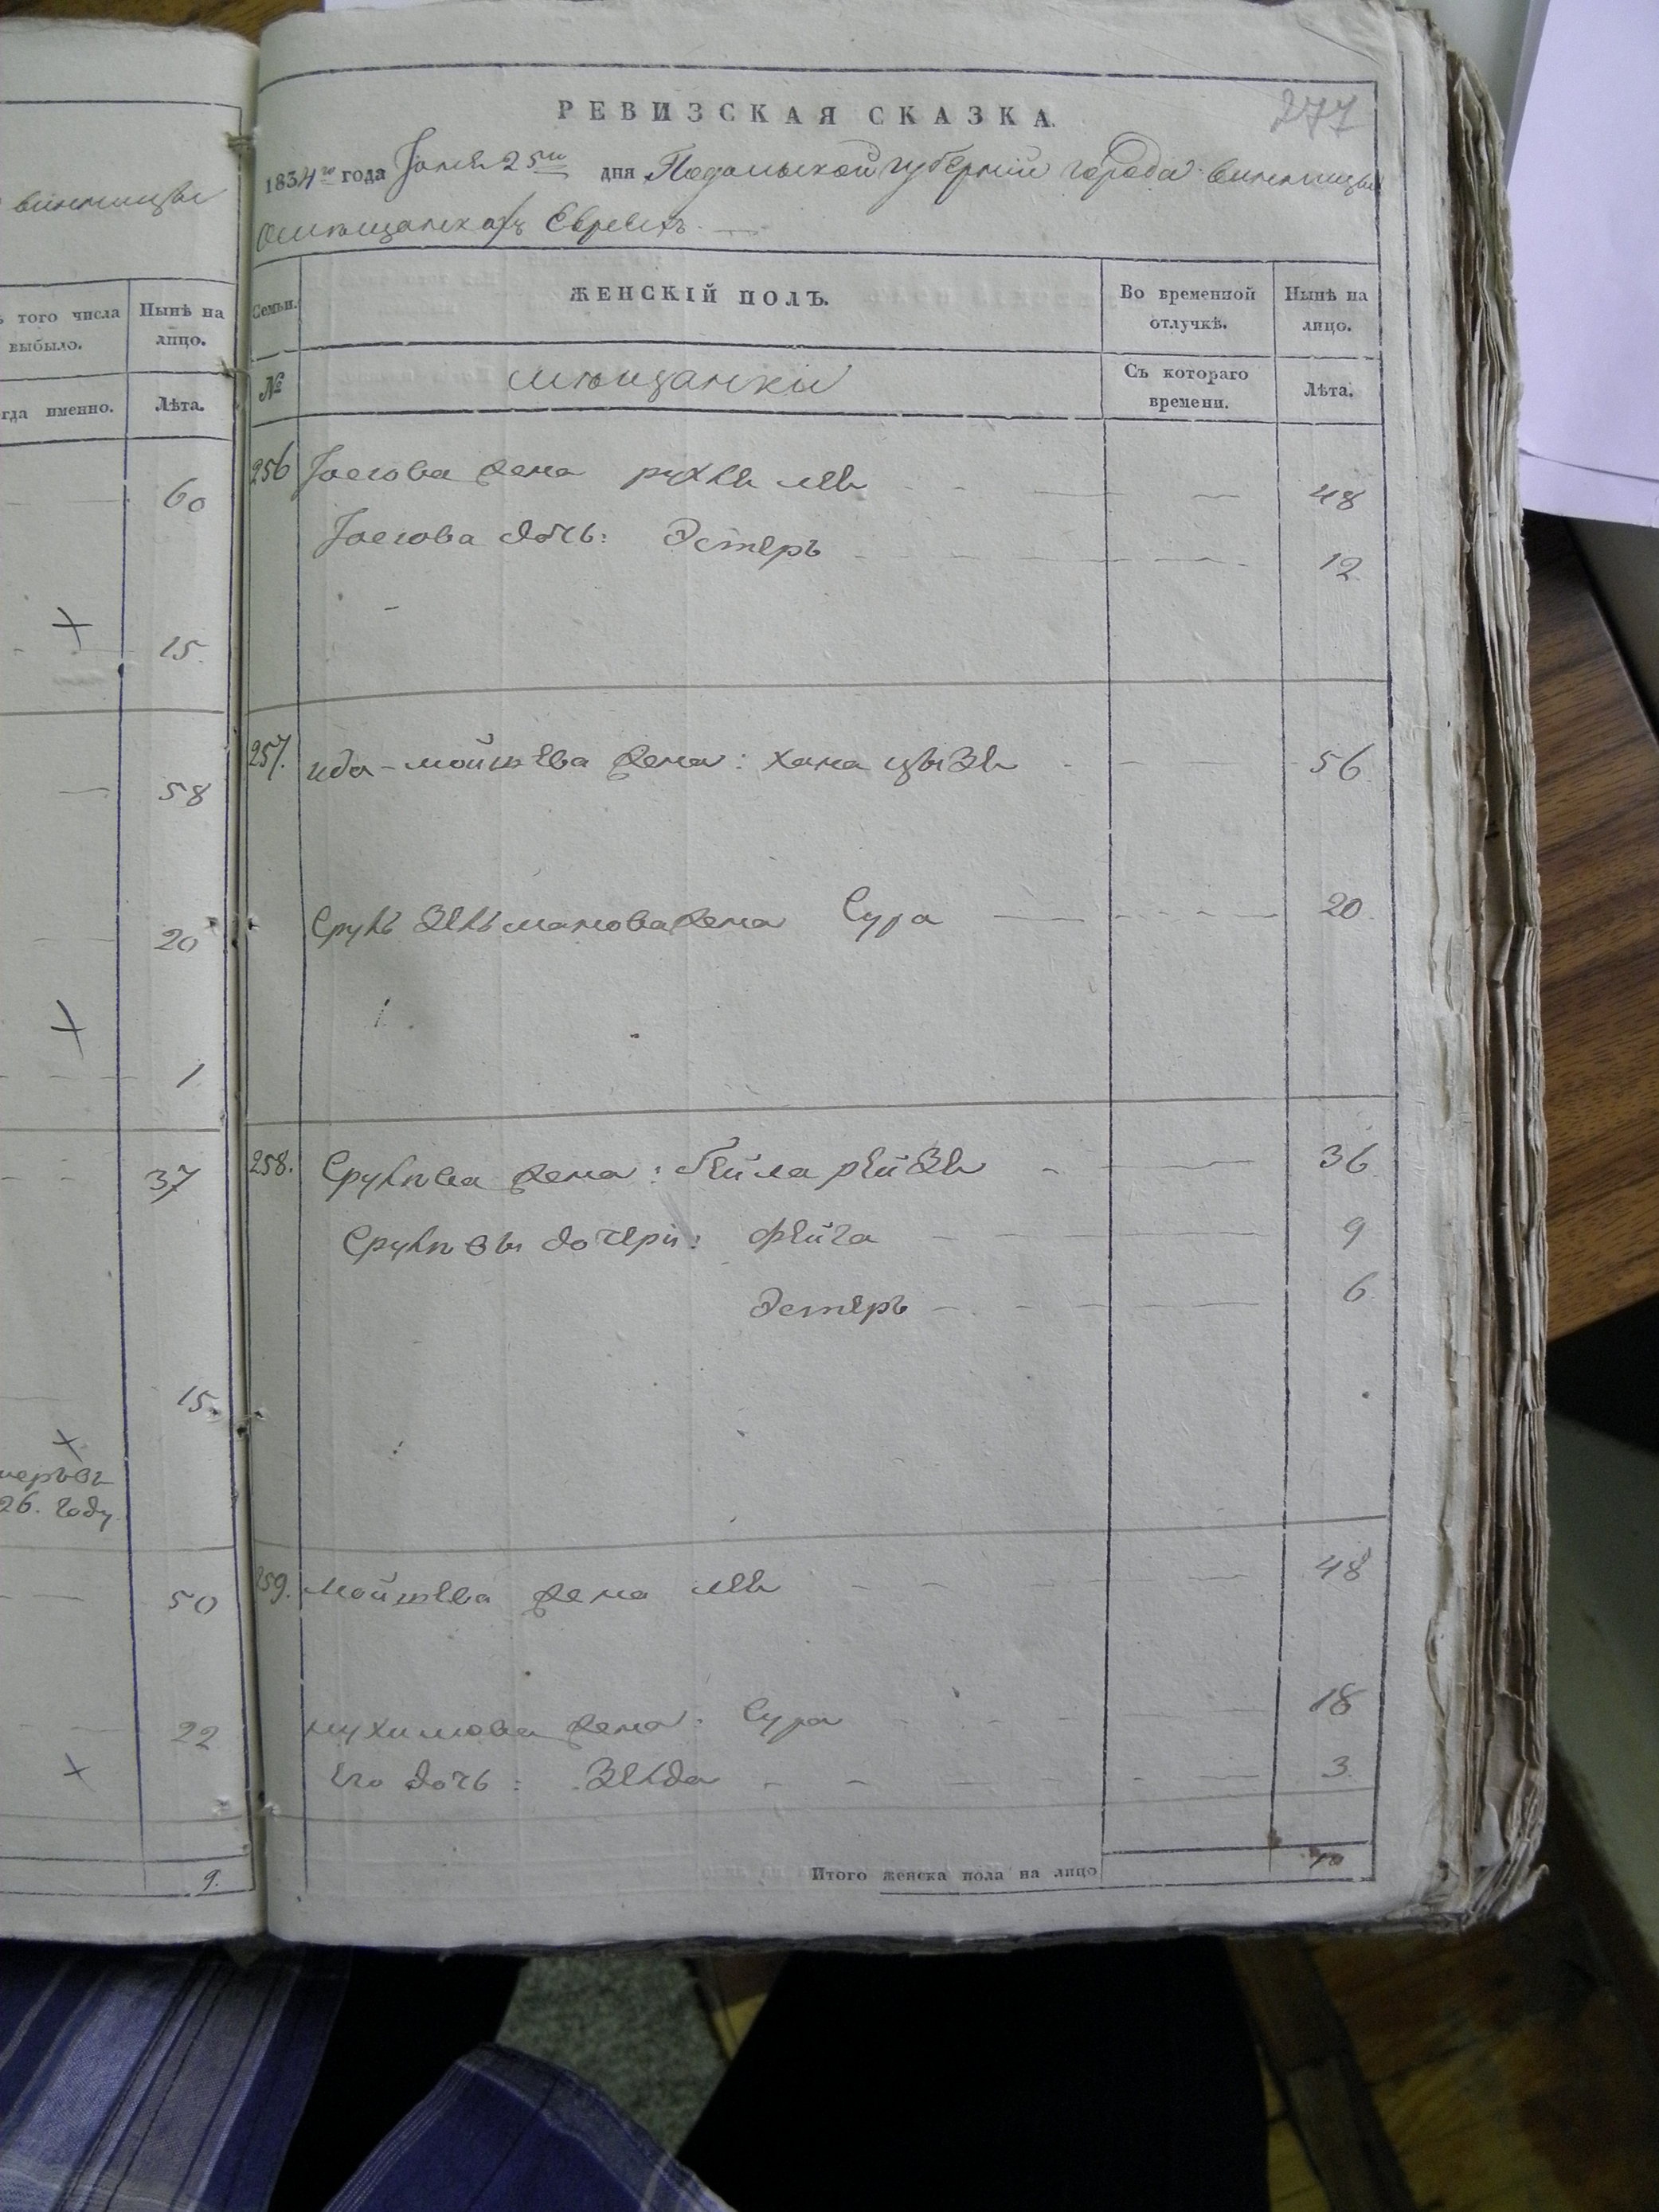 винницы
ъ того числа выбыло.
Нынѣ на лицо.
гда именно.
Лѣта.
60
15.
58
20
1
37
15.
26. году
50
22
9.
277
РЕВИЗСКАЯ СКАЗКА.
1834го года 25го дня Подольской губерніи города винницы
Омѣщанехъ Евреяхъ.
Семьи.
ЖЕНСКІЙ ПОЛЪ.
Во временной отлучкѣ.
Нынѣ на лицо.
№
мѣщанки
Съ котораго времени.
Лѣта.
256 жена рухля лея 48
дочь: Эстеръ 12
257. жена: хана цызя 56
Сруль Зельманова жена Сура 20
258. Срулева жена: бейла рейзя 36
Срулевы дочери: фейга 9
Эстеръ 6
259. мойшева жена лея 48
нухимова жена: Сура 18
его дочь: Зелда 3.
Итого женска пола на лицо 10